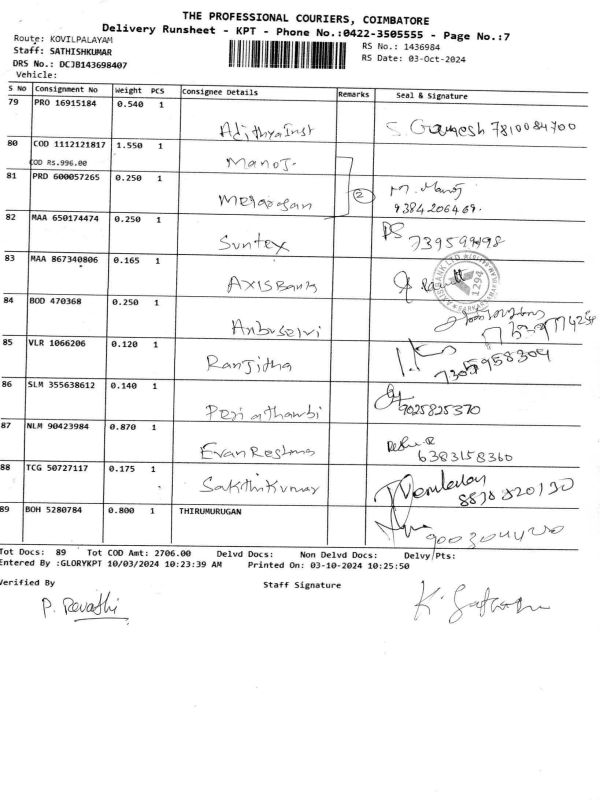 THE PROFESSIONAL COURIERS, COIMBATORE
Delivery Runsheet - KPT - Phone No.:0422-3505555 - Page No.:7
Route: KOVILPALAYAM
RS No.: 1436984
Staff: SATHISHKUMAR
RS Date: 03-Oct-2024
DRS No.: DCJB143698407
Vehicle:
S No Consignment No Weight PCS Consignee Details Remarks Seal & Signature
79 PRO 16915184 0.540 1
Adithya Inst S. Ganesh 7810084700
80 COD 1112121817 1.550 1
COD RS.996.00 Manoj.
81 PRD 600057265 0.250 1 2 M. Manoj
9384206469.
82 MAA 650174474 0.250 1
Suntex PS
83 MAA 867340806 0.165 1
AXIS Bank
AXIS BANK LTD 1294
84 BOD 470368 0.250 1
Anbuselvi
85 VLR 1066206 0.120 1
Ranjitha 7305958304
86 SLM 355638612 0.140 1
Periathambi 9025825370
87 NLM 90423984 0.870 1
Evan Reshma 6383158360
88 TCG 50727117 0.175 1
SakithiKumar
89 BOH 5280784 0.800 1 THIRUMURUGAN
Tot Docs: 89 Tot COD Amt: 2706.00 Delvd Docs: Non Delvd Docs: Delvy/Pts:
Entered By :GLORYKPT 10/03/2024 10:23:39 AM Printed On: 03-10-2024 10:25:50
Verified By Staff Signature
P. Revathi